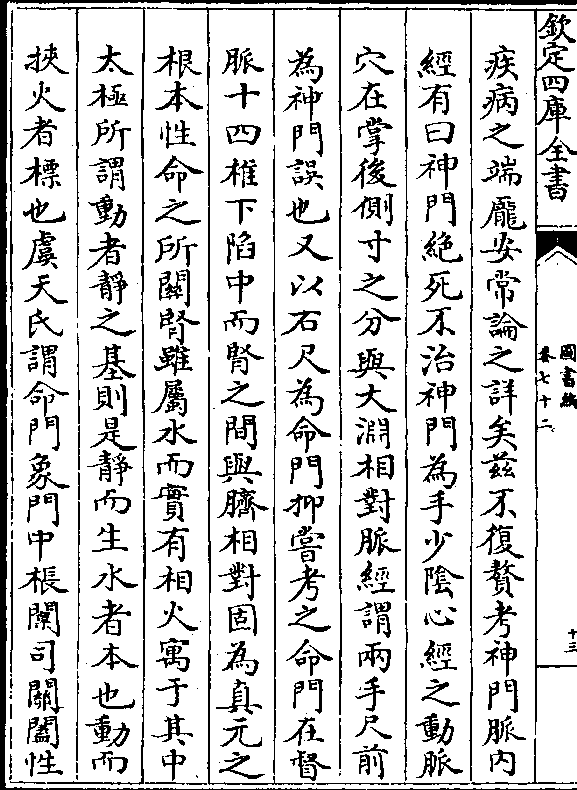 欽定四庫全書
圖書編
卷七十二
十三
疾病之端龐安常論之詳矣茲不復贅考神門脈内
經有曰神門絶死不治神門為手少陰心經之動脈
穴在掌後側寸之分與大淵相對脈經謂兩手尺前
為神門誤也又以右尺為命門抑嘗考之命門在督
脈十四椎下陷中而腎之間與臍相對固為真元之
根本性命之所關腎雖屬水而實有相火寓于其中
太極所謂動者靜之基則是靜而生水者本也動而
挾火者標也虞天氏謂命門象門中棖闑司關闔性